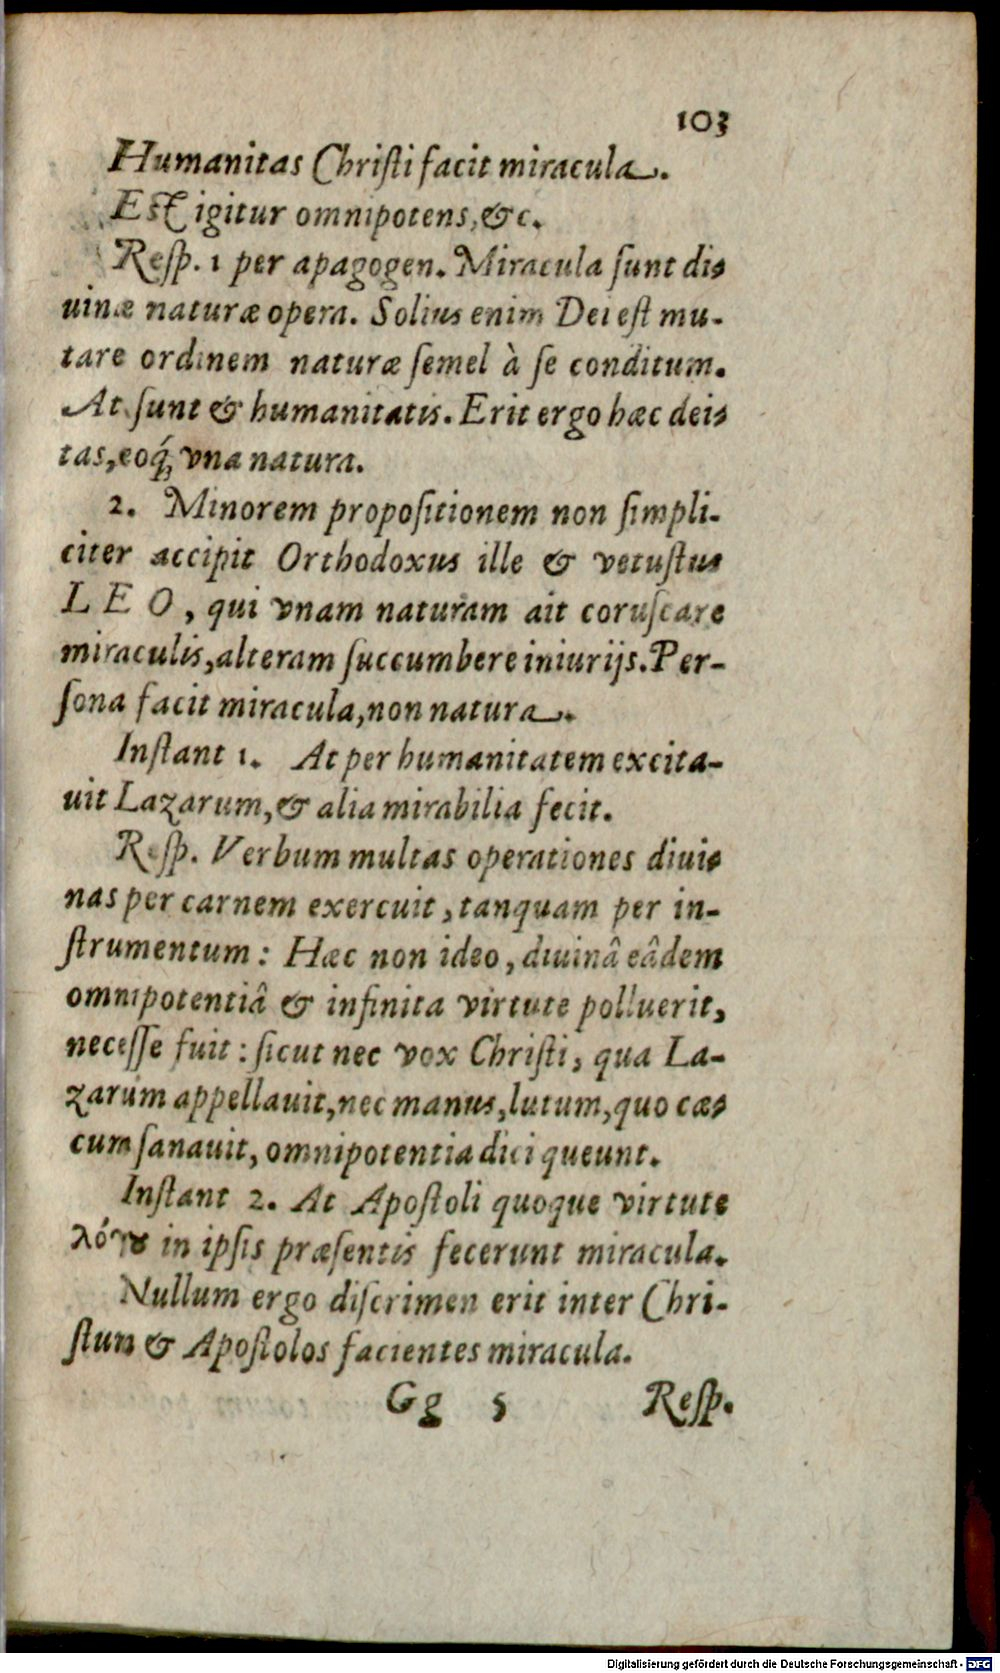 103
Humanitas Chriſti facit miracula.
Eſt igitur omnipotens, &c.
Reſp. 1 per apagogen. Miracula ſunt di-
uinæ naturæ opera. Solius enim Dei eſt mu-
tare ordinem naturæ ſemel à ſe conditum.
At ſunt & humanitatis. Erit ergo hæc dei-
tas, eoq́; vna natura.
2. Minorem propoſitionem non ſimpli-
citer accipit Orthodoxus ille & vetuſtus
LEO, qui vnam naturam ait coruſcare
miraculis, alteram ſuccumbere iniurijs. Per-
ſona facit miracula, non natura.
Inſtant 1. At per humanitatem excita-
uit Lazarum, & alia mirabilia fecit.
Reſp. Verbum multas operationes diui-
nas per carnem exercuit, tanquam per in-
ſtrumentum: Hæc non ideo, diuinâ eâdem
omnipotentiâ & infinita virtute polluerit,
neceſſe fuit: ſicut nec vox Chriſti, qua La-
zarum appellauit, nec manus, lutum, quo cæ-
cum ſanauit, omnipotentia dici queunt.
Inſtant 2. At Apoſtoli quoque virtute
λόγȣ in ipſis præſentis fecerunt miracula.
Nullum ergo diſcrimen erit inter Chri-
ſtum & Apoſtolos facientes miracula.
Gg 5 Reſp.
Digitalisierung gefördert durch die Deutsche Forschungsgemeinschaft - DFG